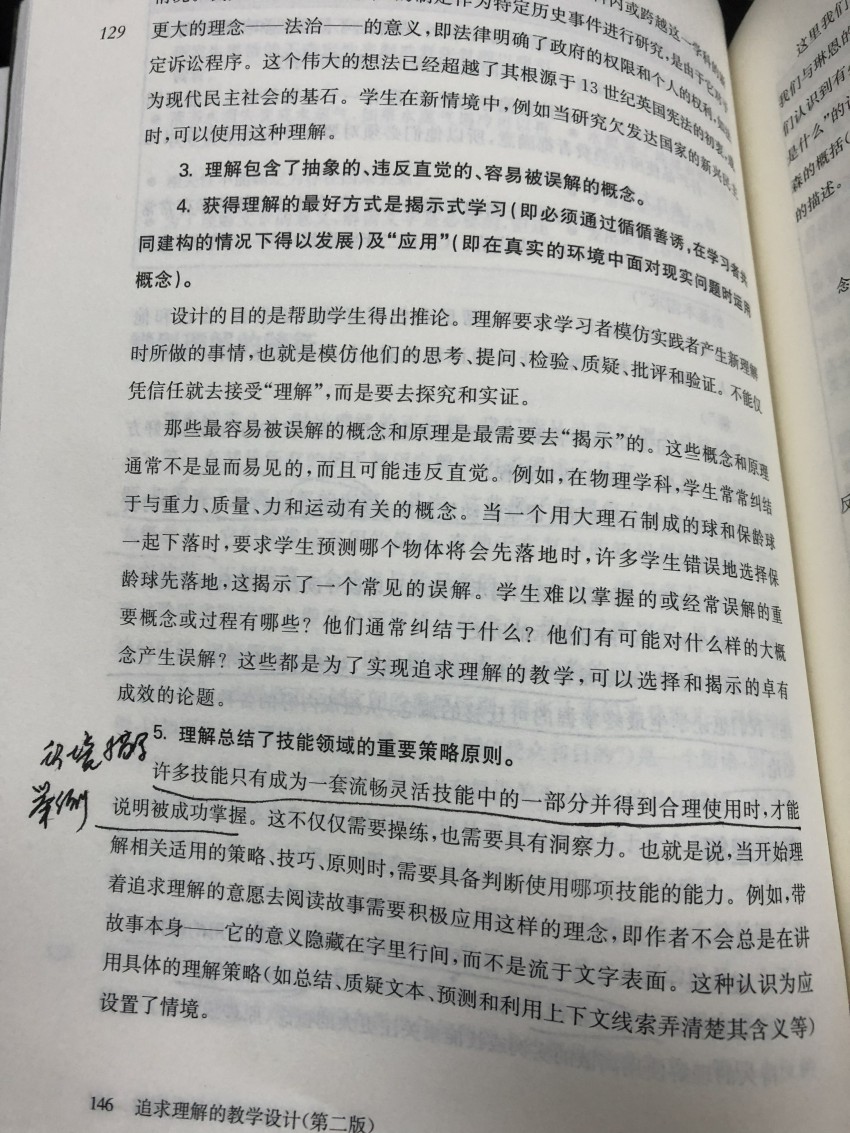 129
更大的理念——法治——的意义，即法律明确了政府的权限和个人的权利，
定诉讼程序。这个伟大的想法已经超越了其根源于 13 世纪英国宪法的初衷，
为现代民主社会的基石。学生在新情境中，例如当研究欠发达国家的新兴
时，可以使用这种理解。
3. 理解包含了抽象的、违反直觉的、容易被误解的概念。
4. 获得理解的最好方式是揭示式学习（即必须通过循循善诱，在学习者共
同建构的情况下得以发展）及“应用”（即在真实的环境中面对现实问题时运用
概念）。
设计的目的是帮助学生得出推论。理解要求学习者模仿实践者产生新理解
时所做的事情，也就是模仿他们的思考、提问、检验、质疑、批评和验证。不能仅
凭信任就去接受“理解”，而是要去探究和实证。
那些最容易被误解的概念和原理是最需要去“揭示”的。这些概念和原理
通常不是显而易见的，而且可能违反直觉。例如，在物理学科，学生常常纠结
于与重力、质量、力和运动有关的概念。当一个用大理石制成的球和保龄球
一起下落时，要求学生预测哪个物体将会先落地时，许多学生错误地选择保
龄球先落地，这揭示了一个常见的误解。学生难以掌握的或经常误解的重
要概念或过程有哪些？他们通常纠结于什么？他们有可能对什么样的大概
念产生误解？这些都是为了实现追求理解的教学，可以选择和揭示的卓有
成效的论题。
5. 理解总结了技能领域的重要策略原则。
举例
许多技能只有成为一套流畅灵活技能中的一部分并得到合理使用时，才能
说明被成功掌握。这不仅仅需要操练，也需要具有洞察力。也就是说，当开始理
解相关适用的策略、技巧、原则时，需要具备判断使用哪项技能的能力。例如，带
着追求理解的意愿去阅读故事需要积极应用这样的理念，即作者不会总是在讲
故事本身——它的意义隐藏在字里行间，而不是流于文字表面。这种认识为应
用具体的理解策略（如总结、质疑文本、预测和利用上下文线索弄清楚其含义等）
设置了情境。
146 追求理解的教学设计（第二版）
这里我们
我们与琳恩的
们认识到有
是什么”的
森的概括（
的描述。
念